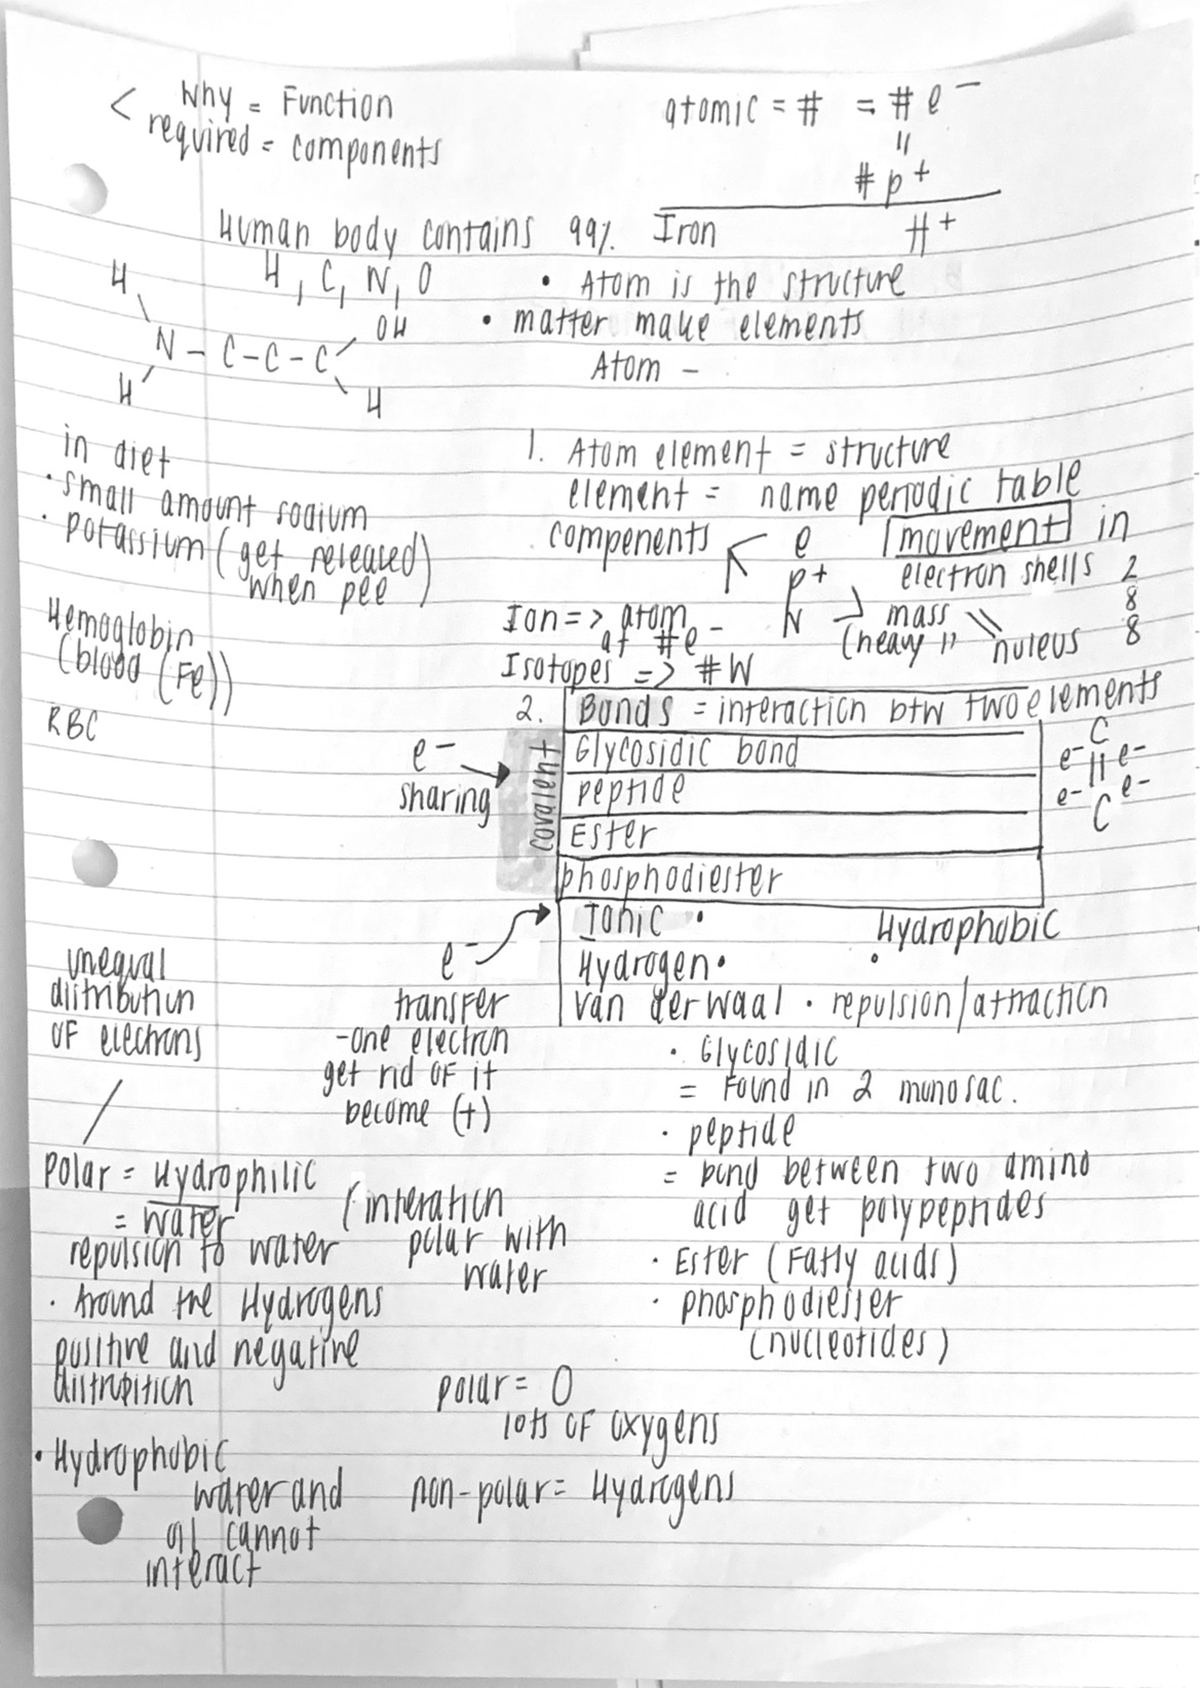 < Why = Function
required = components
atomic = # = # e⁻
=
# p⁺
Human body contains 99%
H, C, N, O
Iron H⁺
• Atom is the structure
• matter make elements
Atom –
H
N – C – C – C
OH
H
H
in diet
· small amount sodium
· potassium (get released)
when pee
Hemoglobin
(blood (Fe))
RBC
1. Atom element = structure
element = name periodic table
compenents
e
p+
N
[movement] in
electron shells 2
8
8
mass
(heavy)
nuleus
Ion => atom
of # e –
Isotopes => # N
2. Bonds = interaction btw two elements
covalent
Glycosidic bond
peptide
Ester
phosphodiester
e– sharing
C
e– || e–
e– e–
C
Ionic •
Hydrophobic
•
Hydrogen•
van der waal · repulsion/attraction
e–
transfer
-one electron
get rid of it
become (+)
unequal
distribution
of electrons
/
polar = Hydrophilic
= water
repulsion to water
(interation
polar with
water
· Around the Hydrogens
positive and negative
distribition
• Hydrophobic
water and
oil cannot
interact
· Glycosidic
= Found in 2 monosac.
· peptide
= bond between two amino
acid get polypeptides
· Ester (Fatty acids)
· phosphodiester
(nucleotides)
polar = O
lots of oxygens
non-polar = Hydrogens